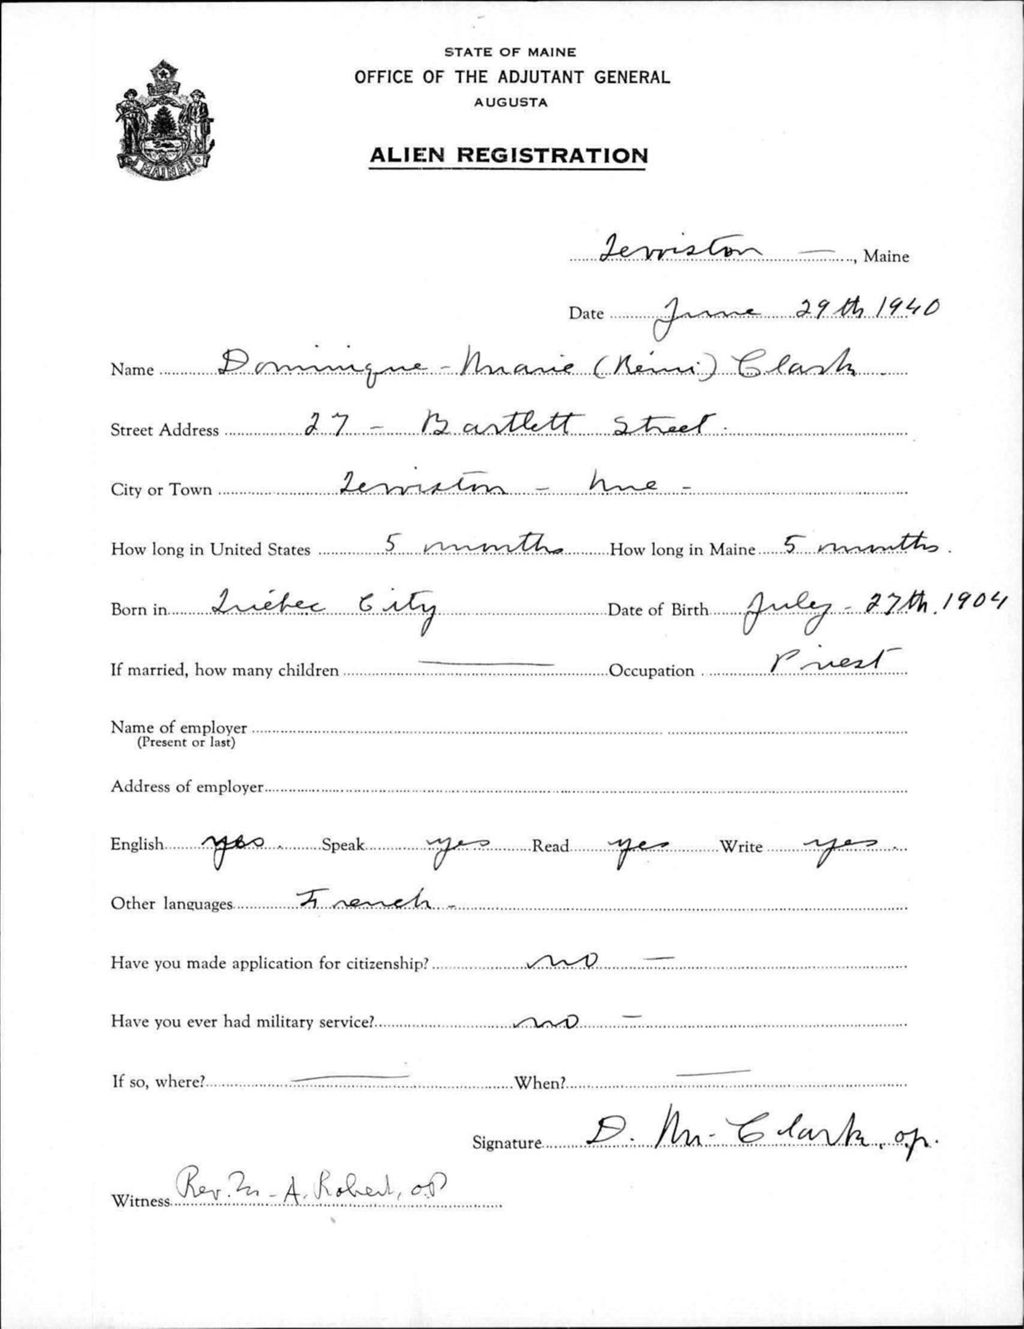 STATE OF MAINE
OFFICE OF THE ADJUTANT GENERAL
AUGUSTA
ALIEN REGISTRATION
MAINE
Lewiston —, Maine
Date June 29th 1940
Name Dominique-Marie (Rémi) Clark
Street Address 27 - Bartlett Street.
City or Town Lewiston - Me -
How long in United States 5 months How long in Maine 5 months.
Born in Québec City Date of Birth July - 27th. 1904
If married, how many children — Occupation Priest
Name of employer
(Present or last)
Address of employer
English yes. Speak yes Read yes Write yes
Other languages French -
Have you made application for citizenship? no —
Have you ever had military service? no —
If so, where? — When? —
Signature D. M. Clark, o.p.
Witness Rev. M-A. Robert, o.p